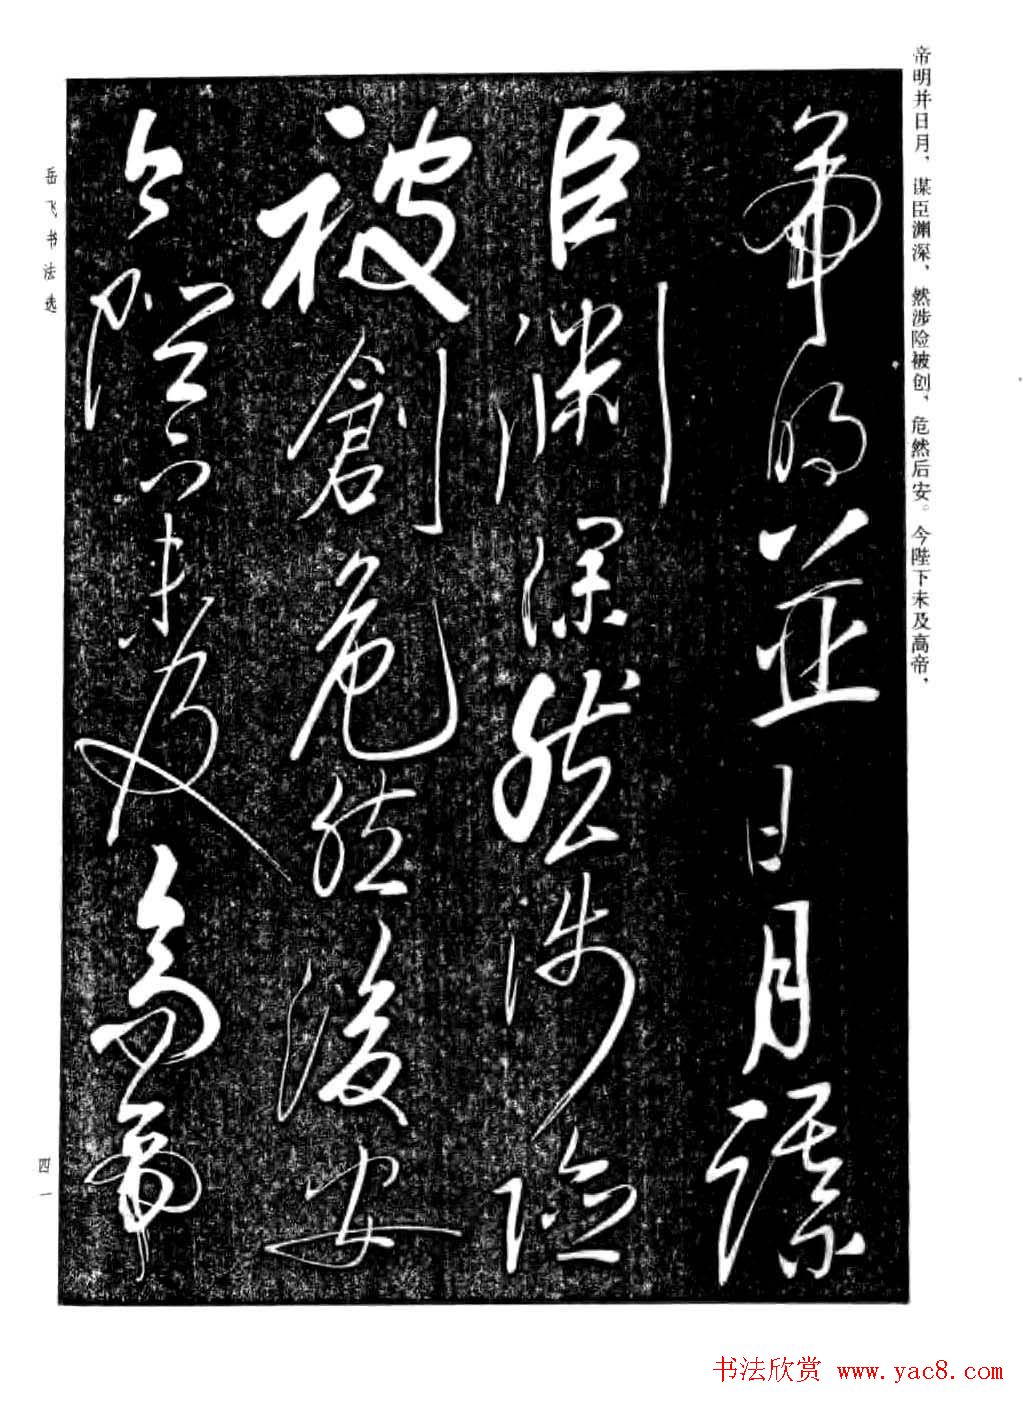 帝明并日月，谋臣渊深，然涉险被创，危然后安。今陛下未及高帝，
帝明並日月謀
臣淵深然涉險
被創危然後安
今陛下未及高帝
岳飞书法选
四一
书法欣赏 www.yac8.com